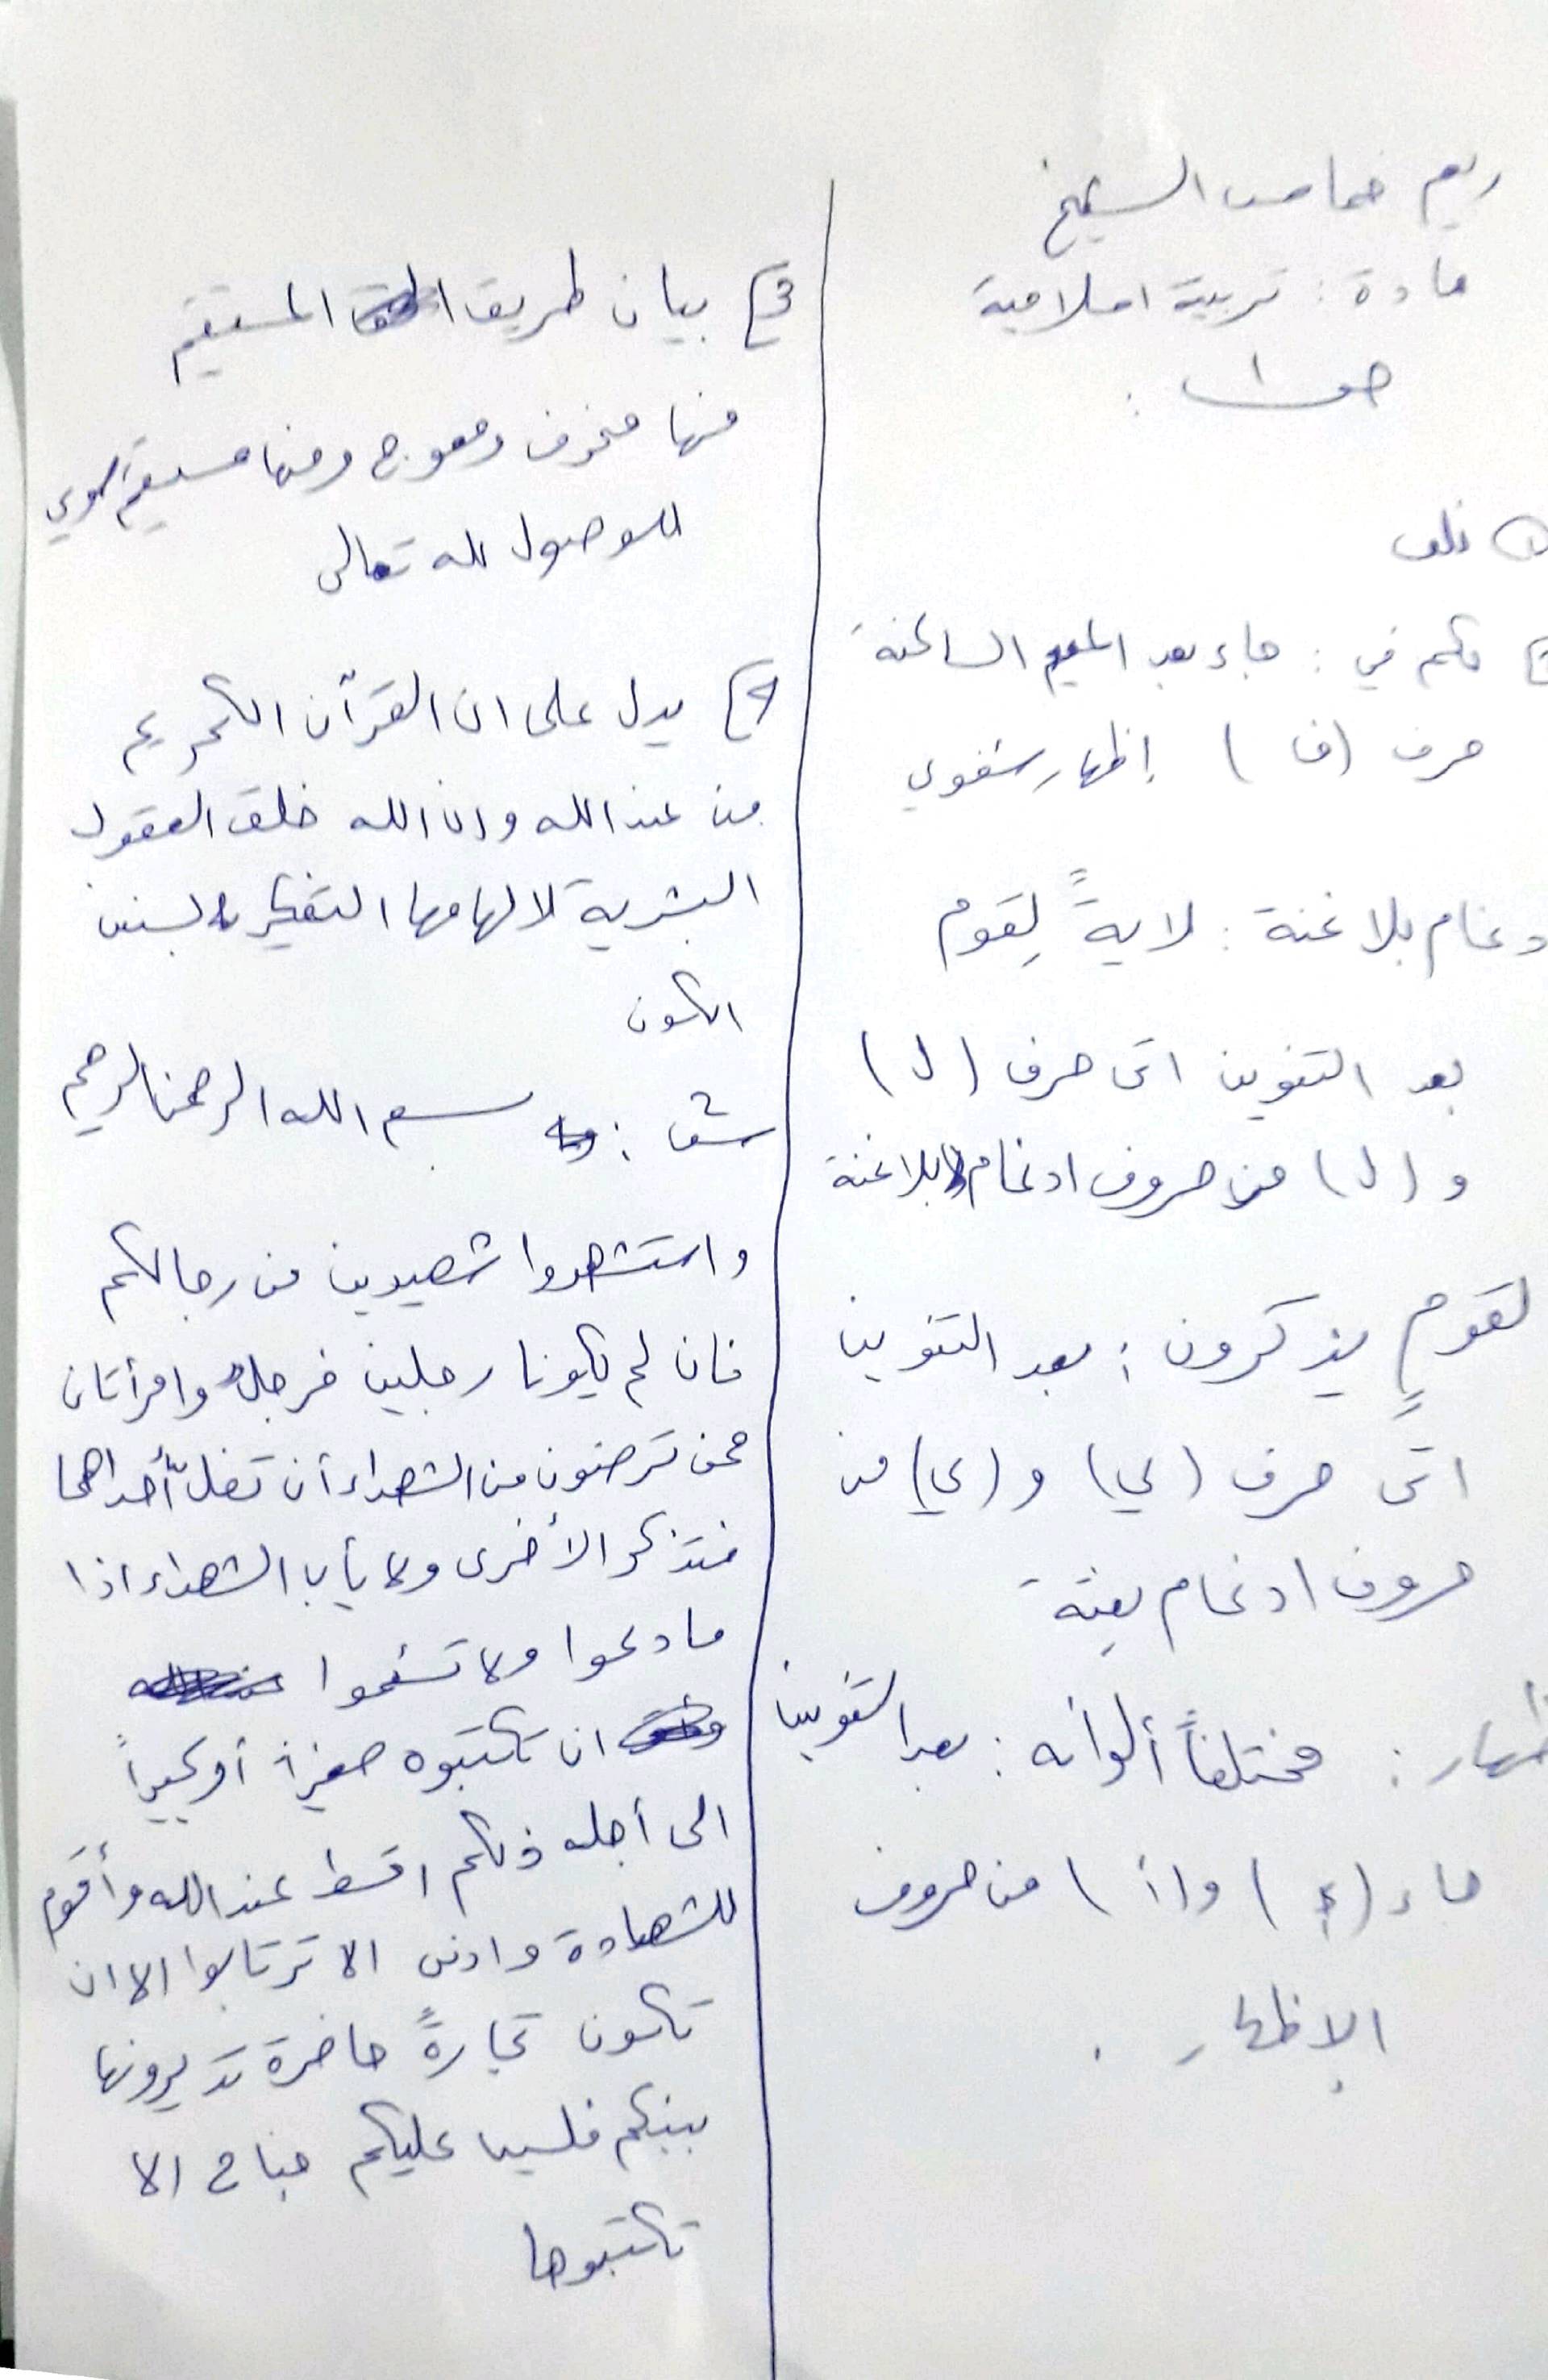 ريم خماس الشيخ
مادة : تربية اسلامية
① خلق
لكم في : جاء بعد الميم الساكنة
حرف (ف) إظهار شفوي
دغام بلا غنة : لايةً لِقوم
بعد التنوين اتى حرف (ل)
و (ل) من حروف ادغام بلا غنة
لقومٍ يذكرون : بعد التنوين
اتى حرف (ي) و (ي) من
حروف ادغام بغنة
ظهار : مختلفاً ألوانه : بعد التنوين
جاء (ء) و (أ) من حروف
الإظهار .
3) بيان طريق المستقيم
منها منحرف ومعوج ومنها مستقيم سوي
للوصول لله تعالى
يدل على ان القرآن الكريم
من عند الله وان الله خلق العقول
البشرية لالهامها التفكير بسنن
الكون
بسم الله الرحمن الرحيم
واستشهدوا شهيدين من رجالكم
فان لم يكونا رجلين فرجل وامرأتان
ممن ترضون من الشهداء أن تضلّ أحداهما
فتذكر الأخرى ولا يأب الشهداء اذا
ما دعوا ولا تسئموا
ان تكتبوه صغيراً أو كبيراً
الى أجله ذلكم اقسط عند الله وأقوم
للشهادة وادنى الا ترتابوا الا ان
تكون تجارةً حاضرة تديرونها
بينكم فليس عليكم جناح الا
تكتبوها